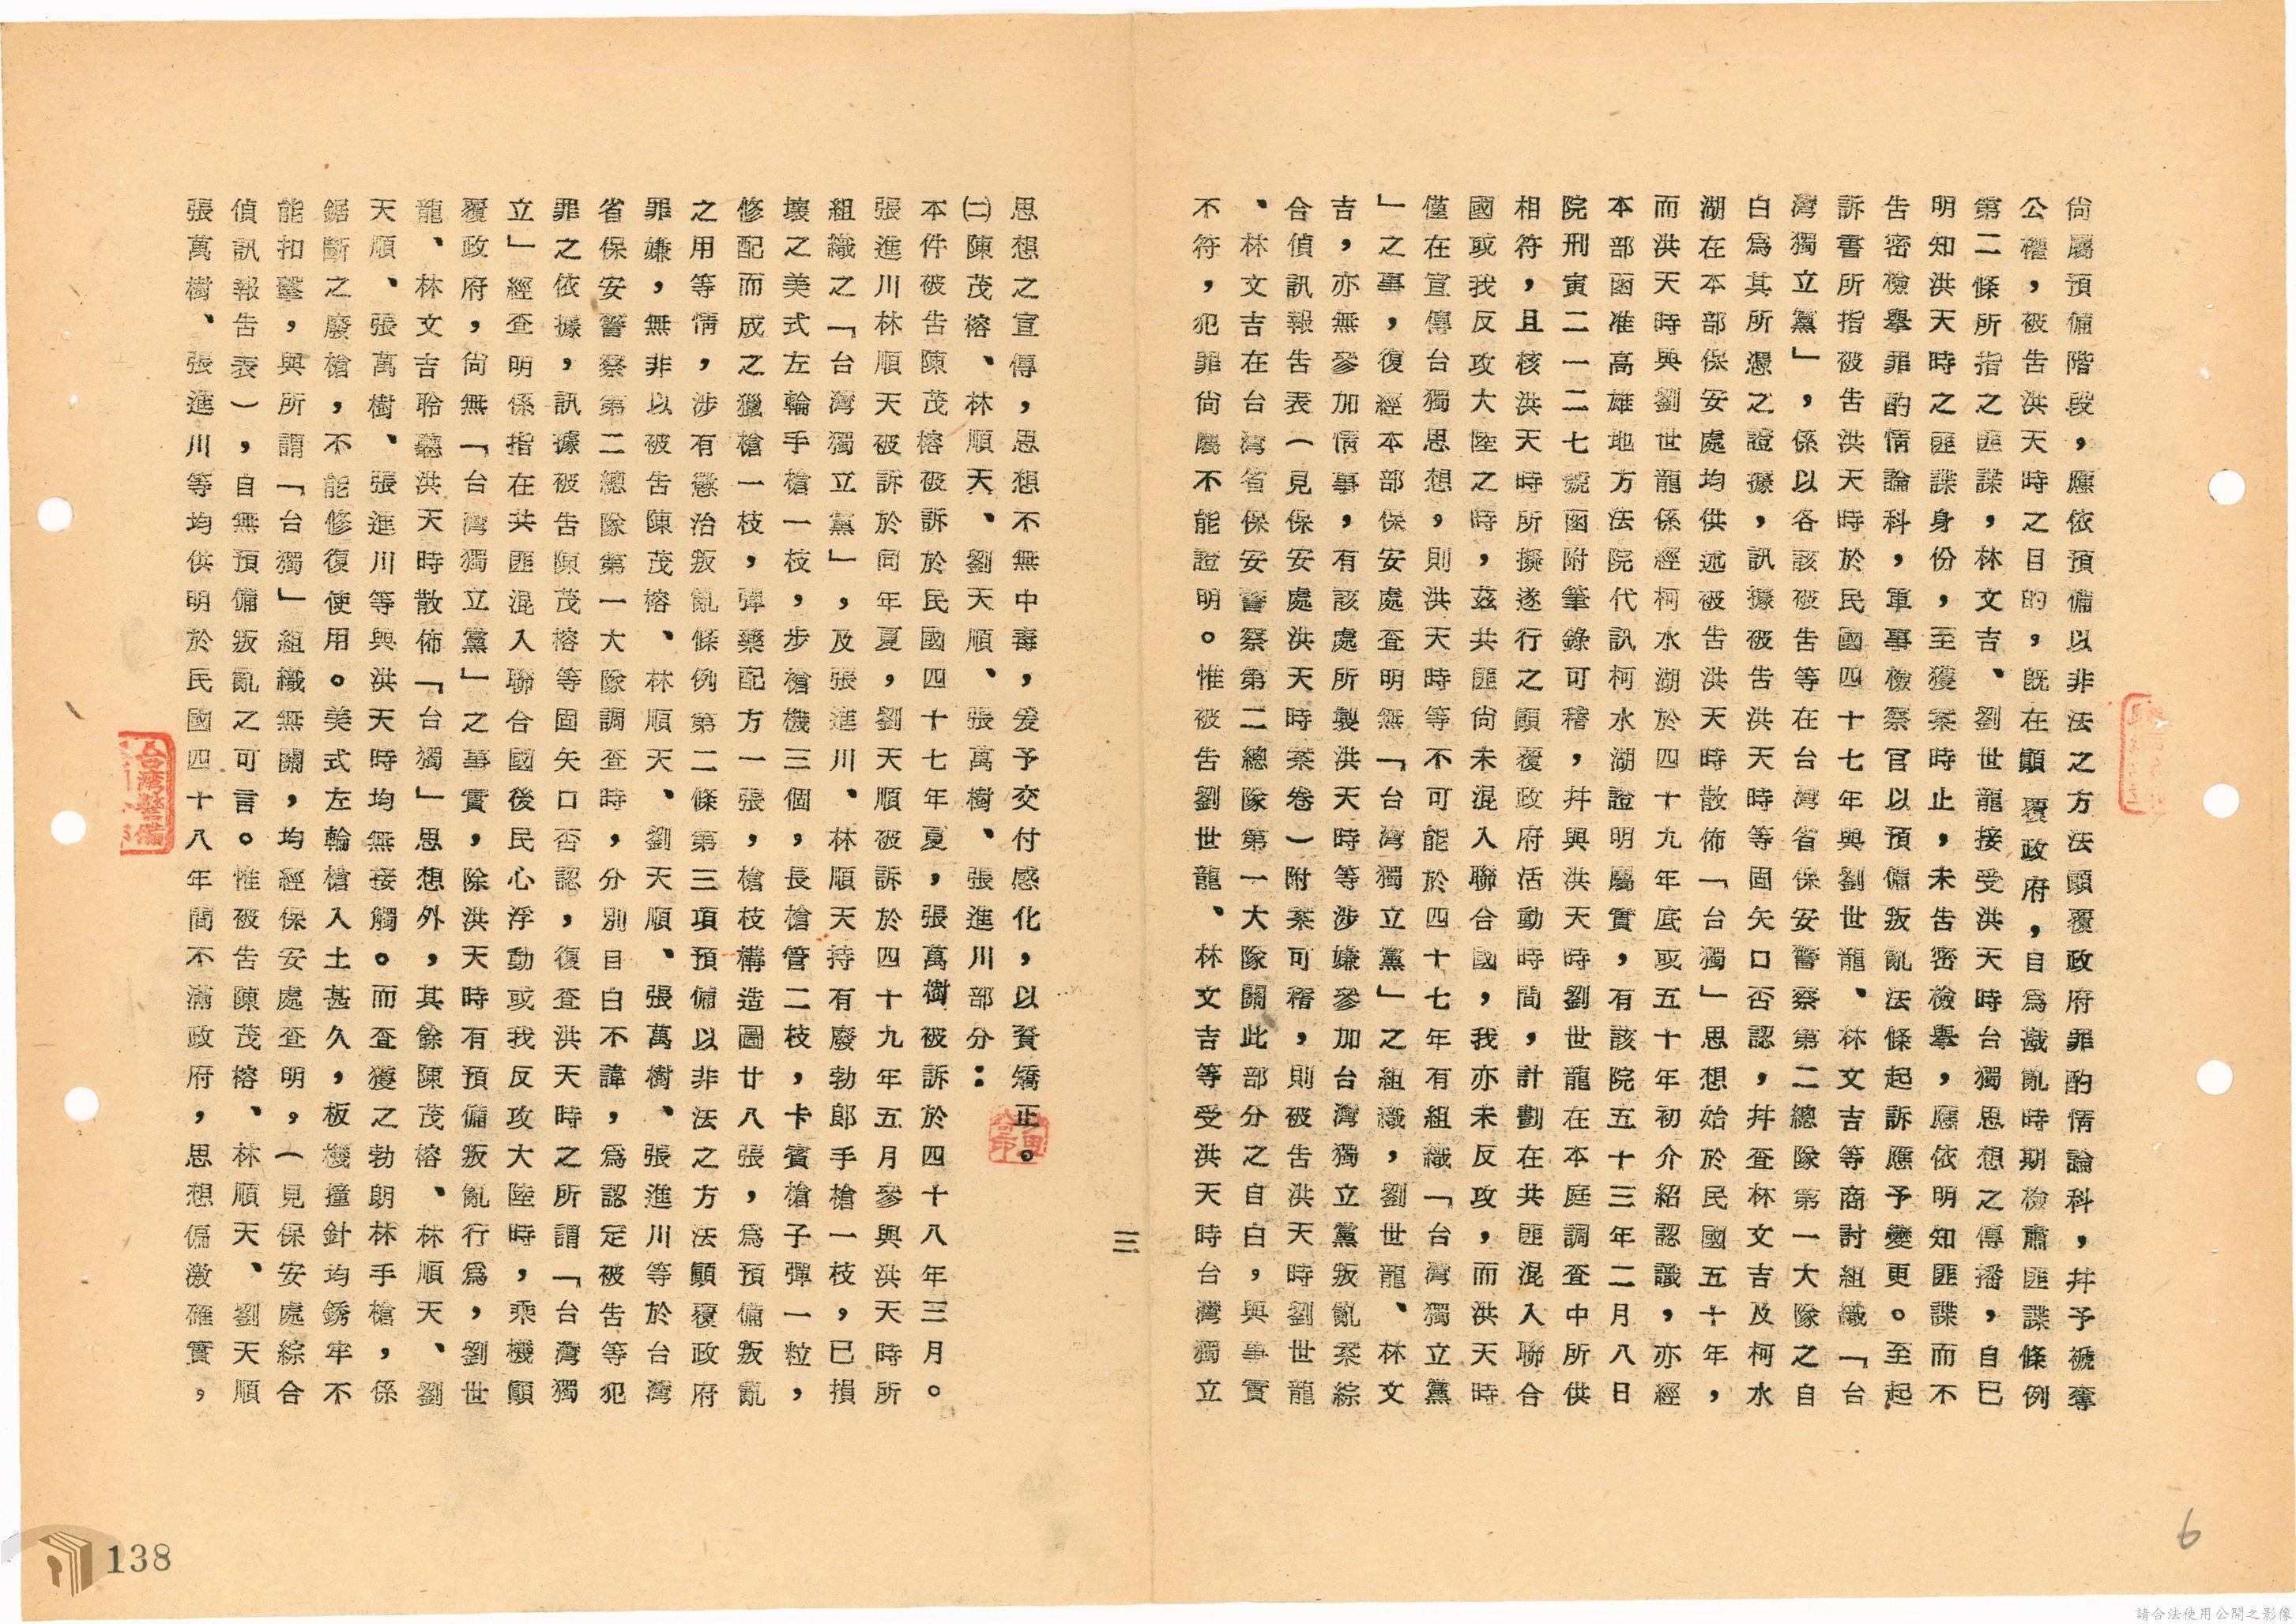 尙屬預備階段，應依預備以非法之方法顚覆政府罪酌情論科，幷予褫奪
公權，被告洪天時之目的，旣在顚覆政府，自爲戡亂時期檢肅匪諜條例
第二條所指之匪諜，林文吉、劉世龍接受洪天時台獨思想之傳播，自已
明知洪天時之匪諜身份，至獲案時止，未告密檢擧，應依明知匪諜而不
告密檢擧罪酌情論科，軍事檢察官以預備叛亂法條起訴應予變更。至起
訴書所指被告洪天時於民國四十七年與劉世龍、林文吉等商討組織「台
灣獨立黨」，係以各該被告等在台灣省保安警察第二總隊第一大隊之自
白爲其所憑之證據，訊據被告洪天時等固矢口否認，幷查林文吉及柯水
湖在本部保安處均供述被告洪天時散佈「台獨」思想始於民國五十年，
而洪天時與劉世龍係經柯水湖於四十九年底或五十年初介紹認識，亦經
本部函准高雄地方法院代訊柯水湖證明屬實，有該院五十三年二月八日
院刑寅二一二七號函附筆錄可稽，幷與洪天時劉世龍在本庭調查中所供
相符，且核洪天時所擬遂行之顚覆政府活動時間，計劃在共匪混入聯合
國或我反攻大陸之時，茲共匪尙未混入聯合國，我亦未反攻，而洪天時
僅在宣傳台獨思想，則洪天時等不可能於四十七年有組織「台灣獨立黨
」之事，復經本部保安處查明無「台灣獨立黨」之組織，劉世龍、林文
吉，亦無參加情事，有該處所製洪天時等涉嫌參加台灣獨立黨叛亂案綜
合偵訊報告表（見保安處洪天時案卷）附案可稽，則被告洪天時劉世龍
、林文吉在台灣省保安警察第二總隊第一大隊關此部分之自白，與事實
不符，犯罪尙屬不能證明。惟被告劉世龍、林文吉等受洪天時台灣獨立
三
思想之宣傳，思想不無中毒，爰予交付感化，以資矯正。
㈡陳茂榕、林順天、劉天順、張萬樹、張進川部分：
本件被告陳茂榕被訴於民國四十七年夏，張萬樹被訴於四十八年三月。
張進川林順天被訴於同年夏，劉天順被訴於四十九年五月參與洪天時所
組織之「台灣獨立黨」，及張進川、林順天持有廢勃郎手槍一枝，已損
壞之美式左輪手槍一枝，步槍機三個，長槍管二枝，卡賓槍子彈一粒，
修配而成之獵槍一枝，彈藥配方一張，槍枝構造圖廿八張，爲預備叛亂
之用等情，涉有懲治叛亂條例第二條第三項預備以非法之方法顚覆政府
罪嫌，無非以被告陳茂榕、林順天、劉天順、張萬樹、張進川等於台灣
省保安警察第二總隊第一大隊調查時，分別目白不諱，爲認定被告等犯
罪之依據，訊據被告陳茂榕等固矢口否認，復查洪天時之所謂「台灣獨
立」經查明係指在共匪混入聯合國後民心浮動或我反攻大陸時，乘機顚
覆政府，尙無「台灣獨立黨」之事實，除洪天時有預備叛亂行爲，劉世
龍、林文吉聆聽洪天時散佈「台獨」思想外，其餘陳茂榕、林順天、劉
天順、張萬樹、張進川等與洪天時均無接觸。而查獲之勃朗林手槍，係
鋸斷之廢槍，不能修復使用。美式左輪槍入土甚久，板機撞針均銹牢不
能扣擊，與所謂「台獨」組織無關，均經保安處查明，（見保安處綜合
偵訊報告表），自無預備叛亂之可言。惟被告陳茂榕、林順天、劉天順
張萬樹、張進川等均供明於民國四十八年間不滿政府，思想偏激確實，
台灣警備
138
6
請合法使用公開之影像